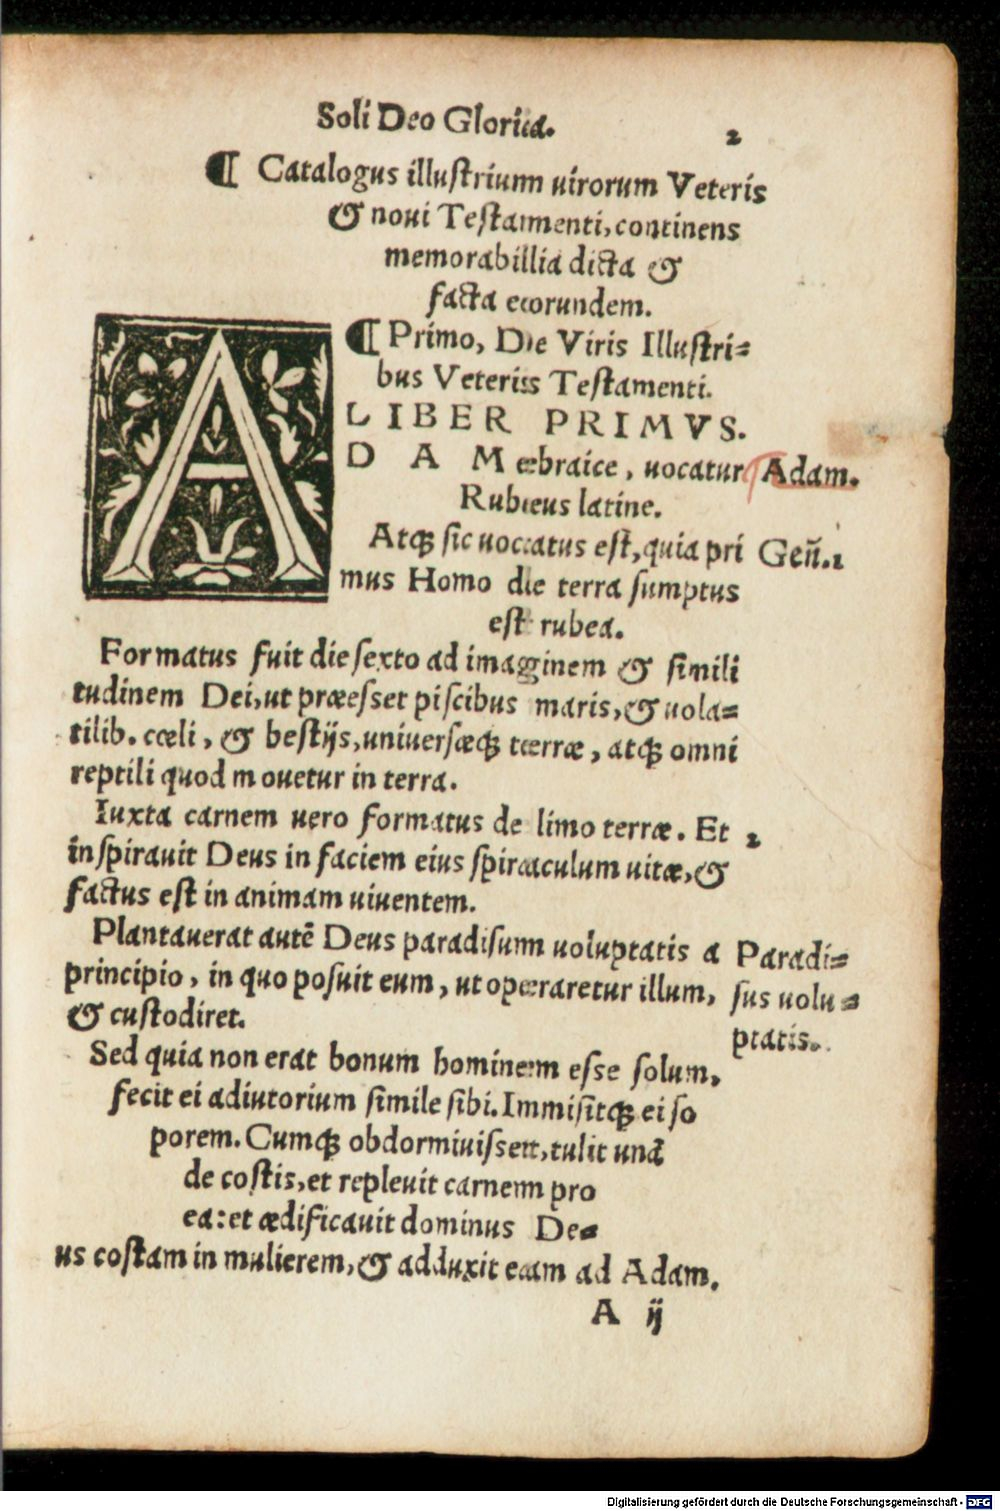 Soli Deo Gloria.
2
¶ Catalogus illustrium uirorum Veteris
& noui Testamenti, continens
memorabillia dicta &
facta eorundem.
¶ Primo, De Viris Illustri=
bus Veteris Testamenti.
LIBER PRIMVS.
ADAM æbraice, uocatur
Adam.
Rubeus latine.
Atqꝫ sic uocatus est, quia pri
Geñ.1
mus Homo de terra sumptus
est rubea.
Formatus fuit die sexto ad imaginem & simili
tudinem Dei, ut præesset piscibus maris, & uola=
tilib. cœli, & bestijs, uniuersæqꝫ terræ, atqꝫ omni
reptili quod mouetur in terra.
Iuxta carnem uero formatus de limo terræ. Et
2
inspirauit Deus in faciem eius spiraculum uitæ, &
factus est in animam uiuentem.
Plantauerat autē Deus paradisum uoluptatis a
Paradi=
principio, in quo posuit eum, ut operaretur illum,
sus uolu=
& custodiret.
ptatis.
Sed quia non erat bonum hominem esse solum,
fecit ei adiutorium simile sibi. Immisitqꝫ ei so
porem. Cumqꝫ obdormiuisset, tulit unā
de costis, et repleuit carnem pro
ea: et ædificauit dominus De=
us costam in mulierem, & adduxit eam ad Adam.
A ij
Digitalisierung gefördert durch die Deutsche Forschungsgemeinschaft - DFG